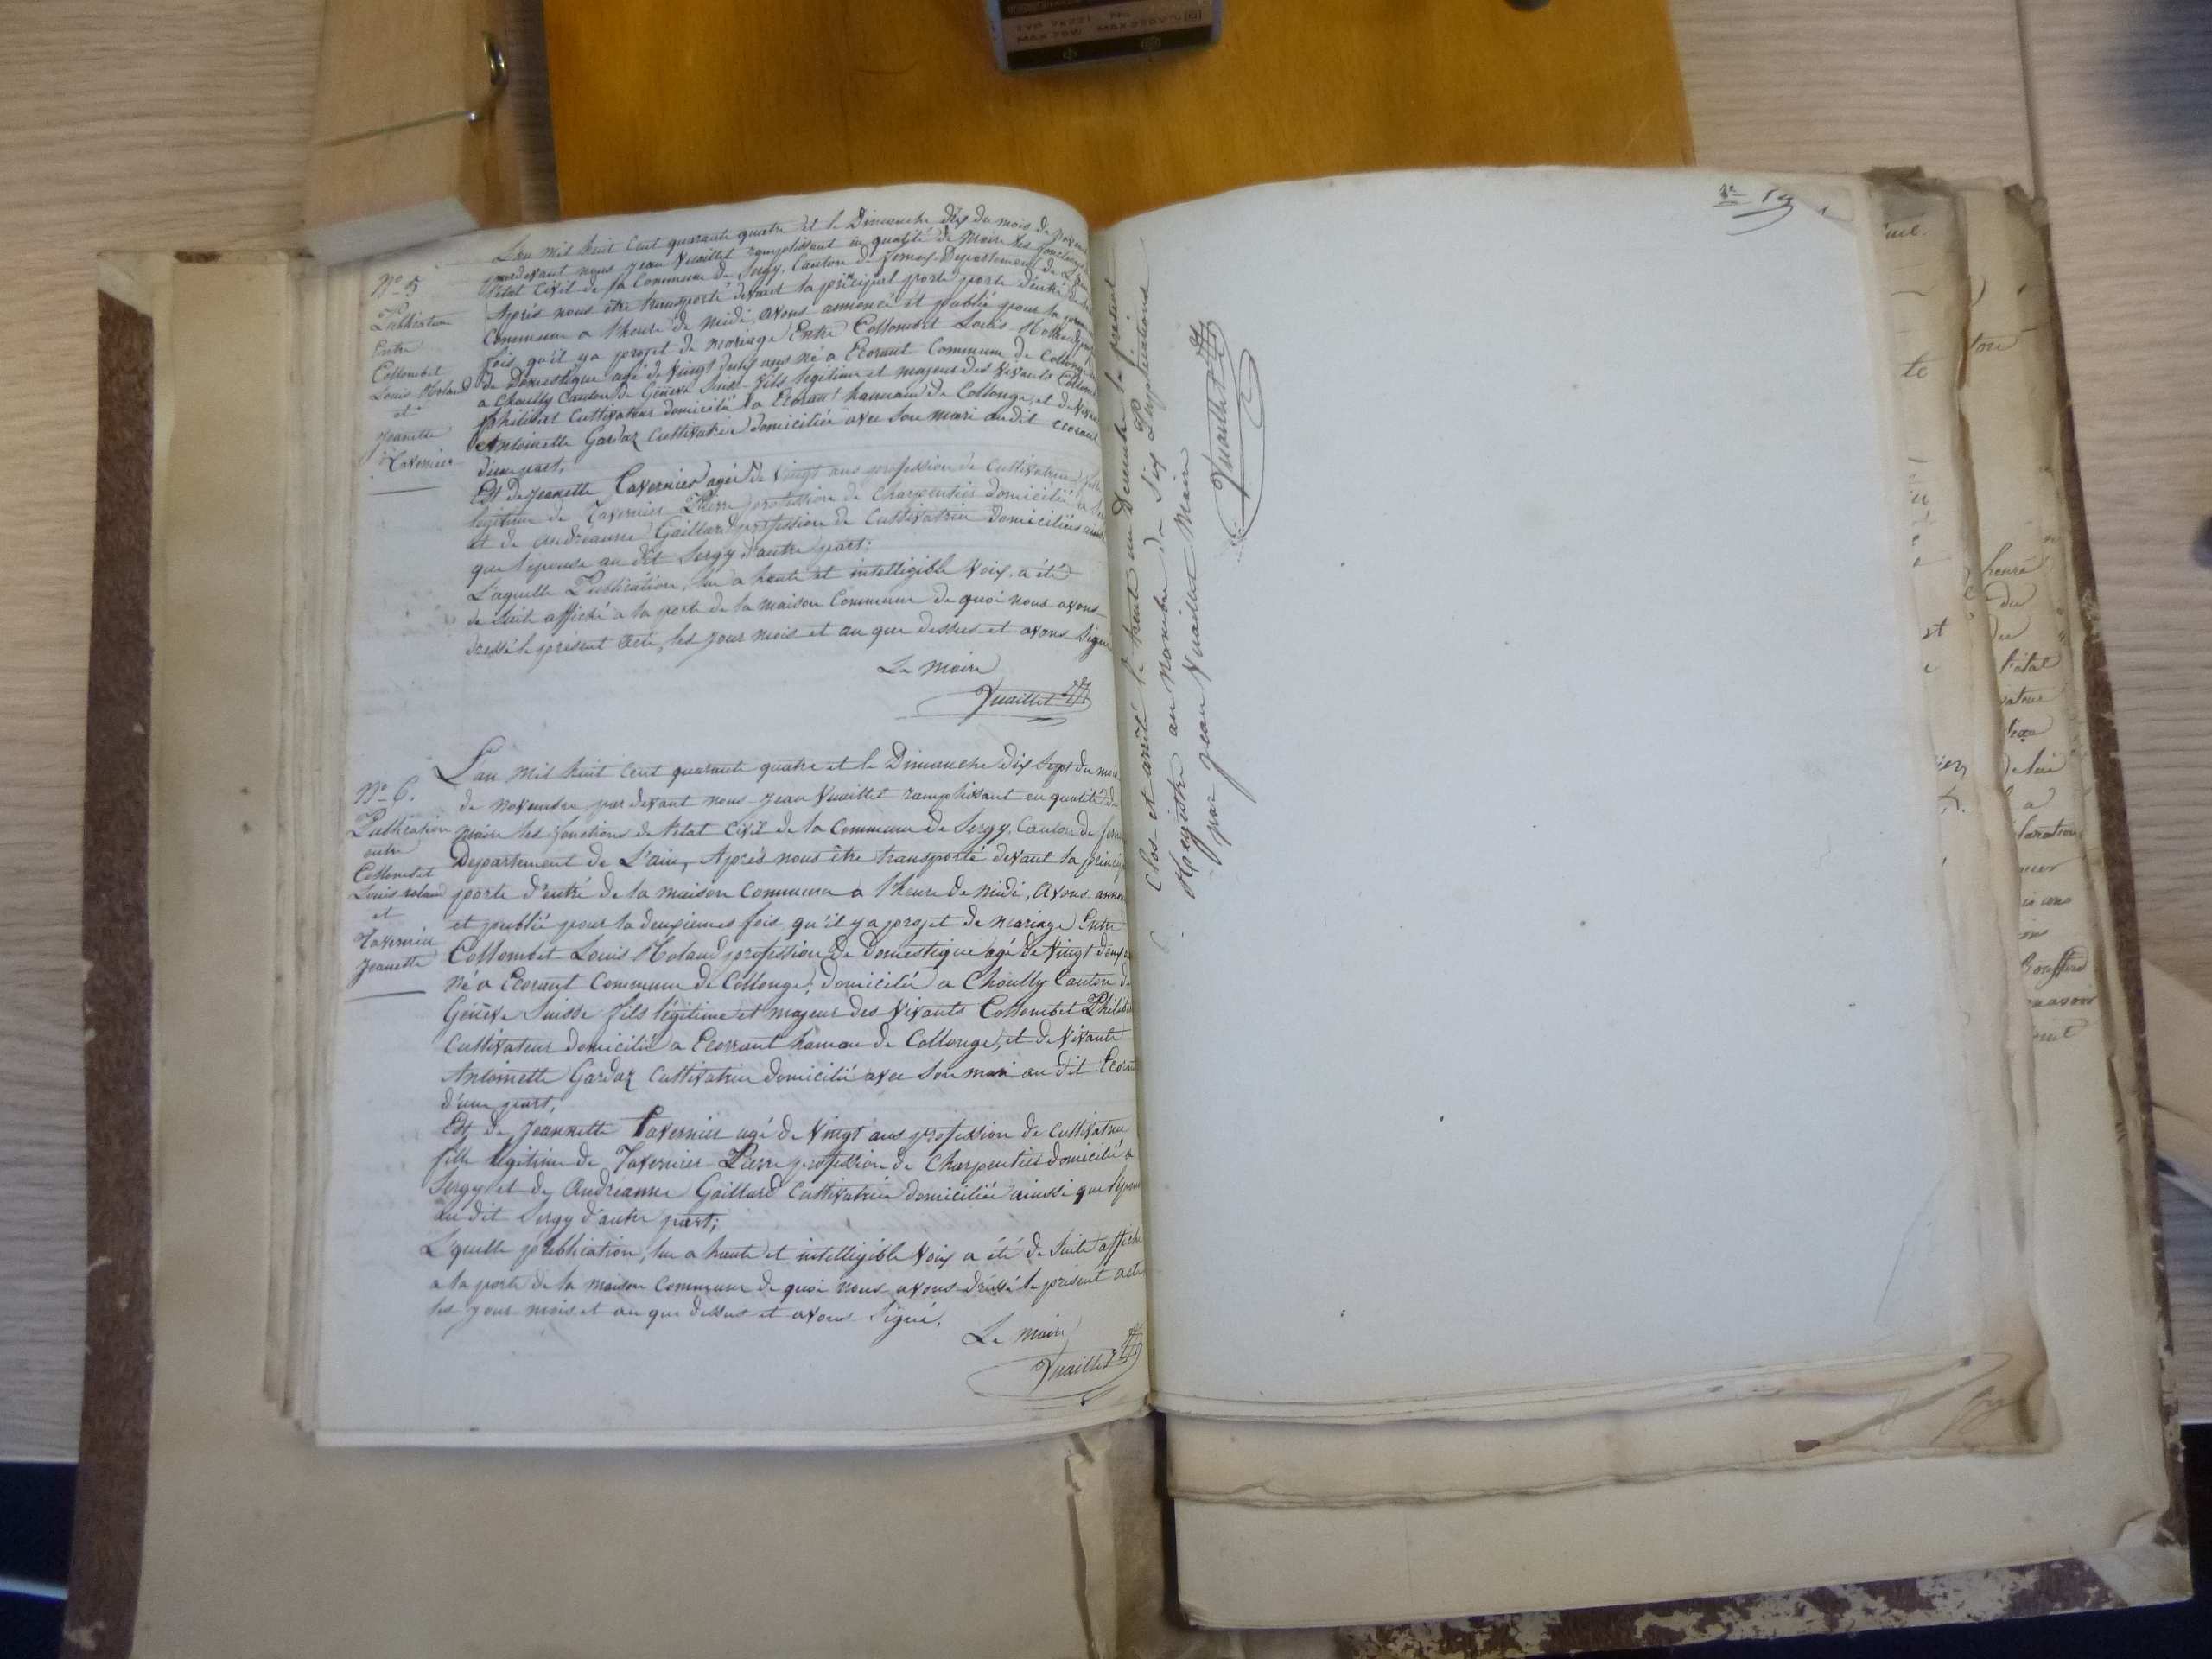 L'an mil huit cent quarante quatre et le Dimanche dix du mois de
pardevant nous Jean Vuaillet remplissant en qualité de Maire les fonctions
l'état Civil de la Commune de Sergy, Canton de fernex, Département de
Après nous être transporté devant la principal porte porte d'entré de
Commune a l'heure de Midi, avons annoncé et publié pour la
fois qu'il y a projet de mariage Entre Collombet Louis Roland
de Domestique agé de Vingt deux ans né a Ecorant Commune de Collonge
a Chouilly Canton de Genève Suisse fils légitime et majeur des vivants
Philibert Cultivateur domicilié a Ecorant hameau de Collonge, et de
Antoinette Gardaz Cultivatrice domiciliée avec son mari au dit Ecorant
d'une part,
Et de Jeanette Tavernier agée de Vingt ans profession de Cultivatrice
légitime de Tavernier Pierre profession de Charpentier domicilié a
et de Andréanne Gaillard profession de Cultivatrice domiciliée
que l'épouse au dit Sergy d'autre part;
Laquelle Publication, lue a haute et intelligible Voix, a été
de suite affiché a la porte de la maison Commune de quoi nous avons
dressé le présent acte, les jour mois et an que dessus et avons Signé
Le Maire
Vuaillet
N° 5
Publication
Entre
Collombet
Louis Roland
et
Jeanette
Tavernier
L'an Mil huit Cent quarante quatre et le Dimanche dix Sept du
de novembre par devant nous Jean Vuaillet remplissant en qualité de
Maire les fonctions de l'état Civil de la Commune de Sergy, Canton de
Département de L'ain, Après nous être transporté devant la
porte d'entré de la maison Commune a l'heure de midi, avons
et publié pour la deuxiemes fois qu'il y a projet de mariage Entre
Collombet Louis Roland profession de Domestique agé de Vingt deux
né a Ecorant Commune de Collonge, domicilié a Chouilly Canton de
Genève Suisse fils légitime et majeur des Vivants Collombet
Cultivateur domicilié a Ecorrant hameau de Collonge, et de Vivante
Antoinette Gardaz Cultivatrice domicilié avec son mari au dit
d'une part,
Et de Jeannette Tavernier agé de Vingt ans profession de Cultivatrice
fille légitime de Tavernier Pierre profession de Charpentier domicilié a
Sergy et de Andréanne Gaillard Cultivatrice domiciliée ainssi que
au dit Sergy d'autre part;
L'quelle publication, lue a haute et intelligible Voix a été de Suite affiché
a la porte de la maison Commune de quoi nous avons dressé le présent acte
les jour mois et an que dessus et avons Signé.
Le Maire
Vuaillet
N° 6.
Publication
entre
Collombet
Louis roland
et
Tavernier
Jeanette
Clos et arrêté le trente un Décembre le présent
Registre au nombre de Six Publications
par Jean Vuaillet Maire
Vuaillet